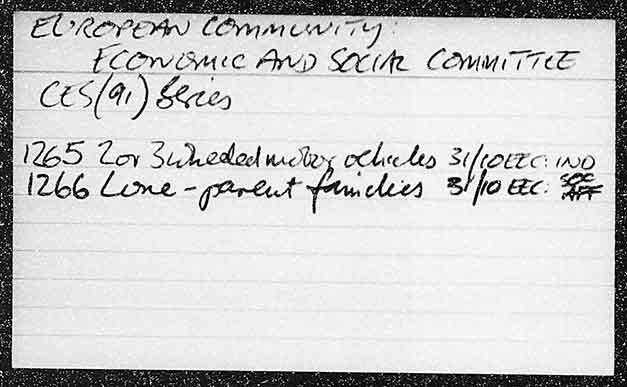 EUROPEAN COMMUNITY:
ECONOMIC AND SOCIAL COMMITTEE
CES(91) Series
1265 2 or 3 wheeled motor vehicles 31/10 EEC: IND
1266 Lone-parent families 31/10 EEC: SOC AFF